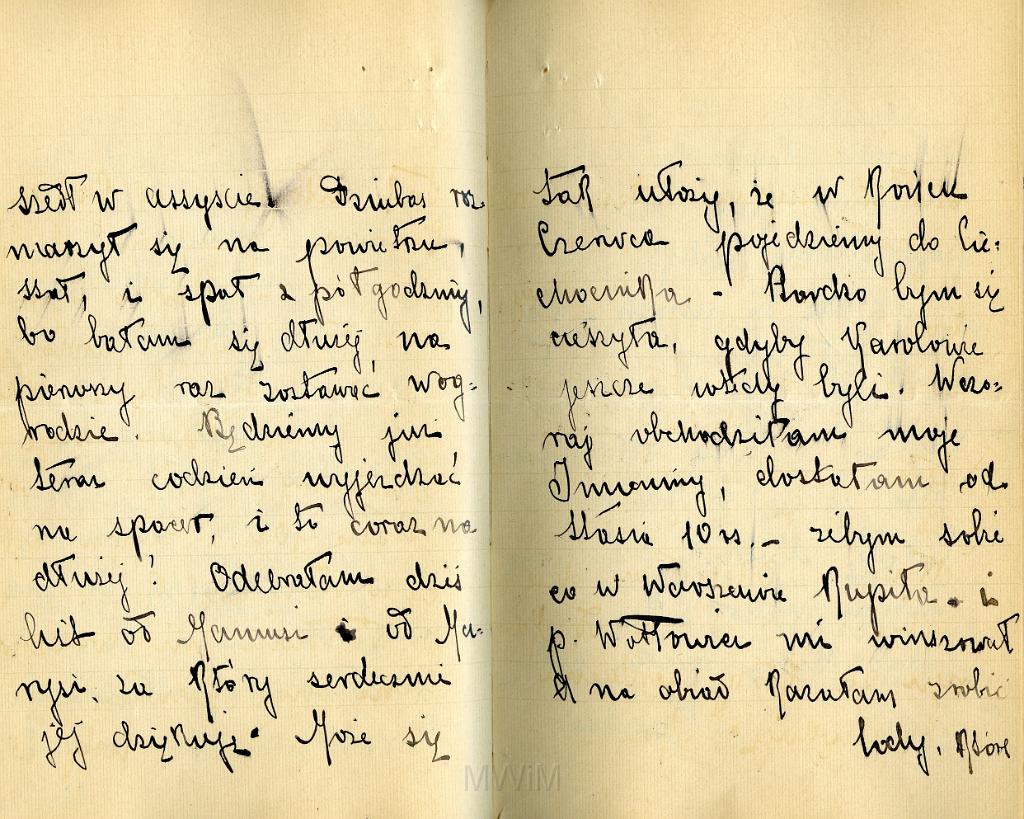 szedł w assyście. Dziubas roz-
marzył się na powietrzu,
ssał, i spał z półgodziny,
bo bałam się dłużéj, na
pierwszy raz zostawać w og-
rodzie. Będziemy już
teraz codzień wyjeżdżać
na spacer, i to coraz na
dłużej! Odebrałam dziś
list od Mamusi i od Ma-
rysi, za który serdecznie
jéj dziękuję. Może się
tak ułoży, że w końcu
Czerwca pojedziemy do Cie-
chocinka - Bardzo bym się
cieszyła, gdyby Karolowie
jeszcze wtedy byli. Wczo-
raj obchodziłam moje
Imieniny, dostałam od
Stasia 10 rs. - żebym sobie
co w Warszawie kupiła. i
p. Wattowicz mi winszował
A na obiad kazałam zrobić
lody, które
MWiM